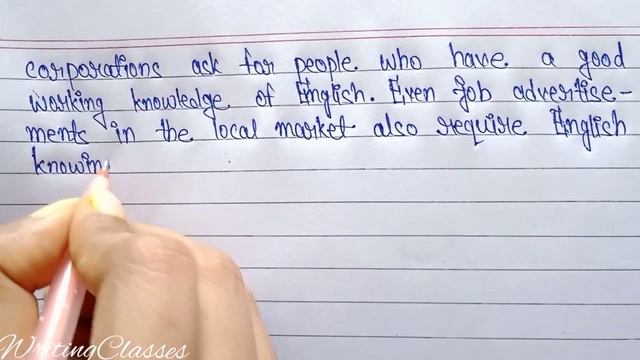 corporations ask for people who have a good
working knowledge of English. Even job advertise-
ments in the local market also require English
knowin
WritingClasses